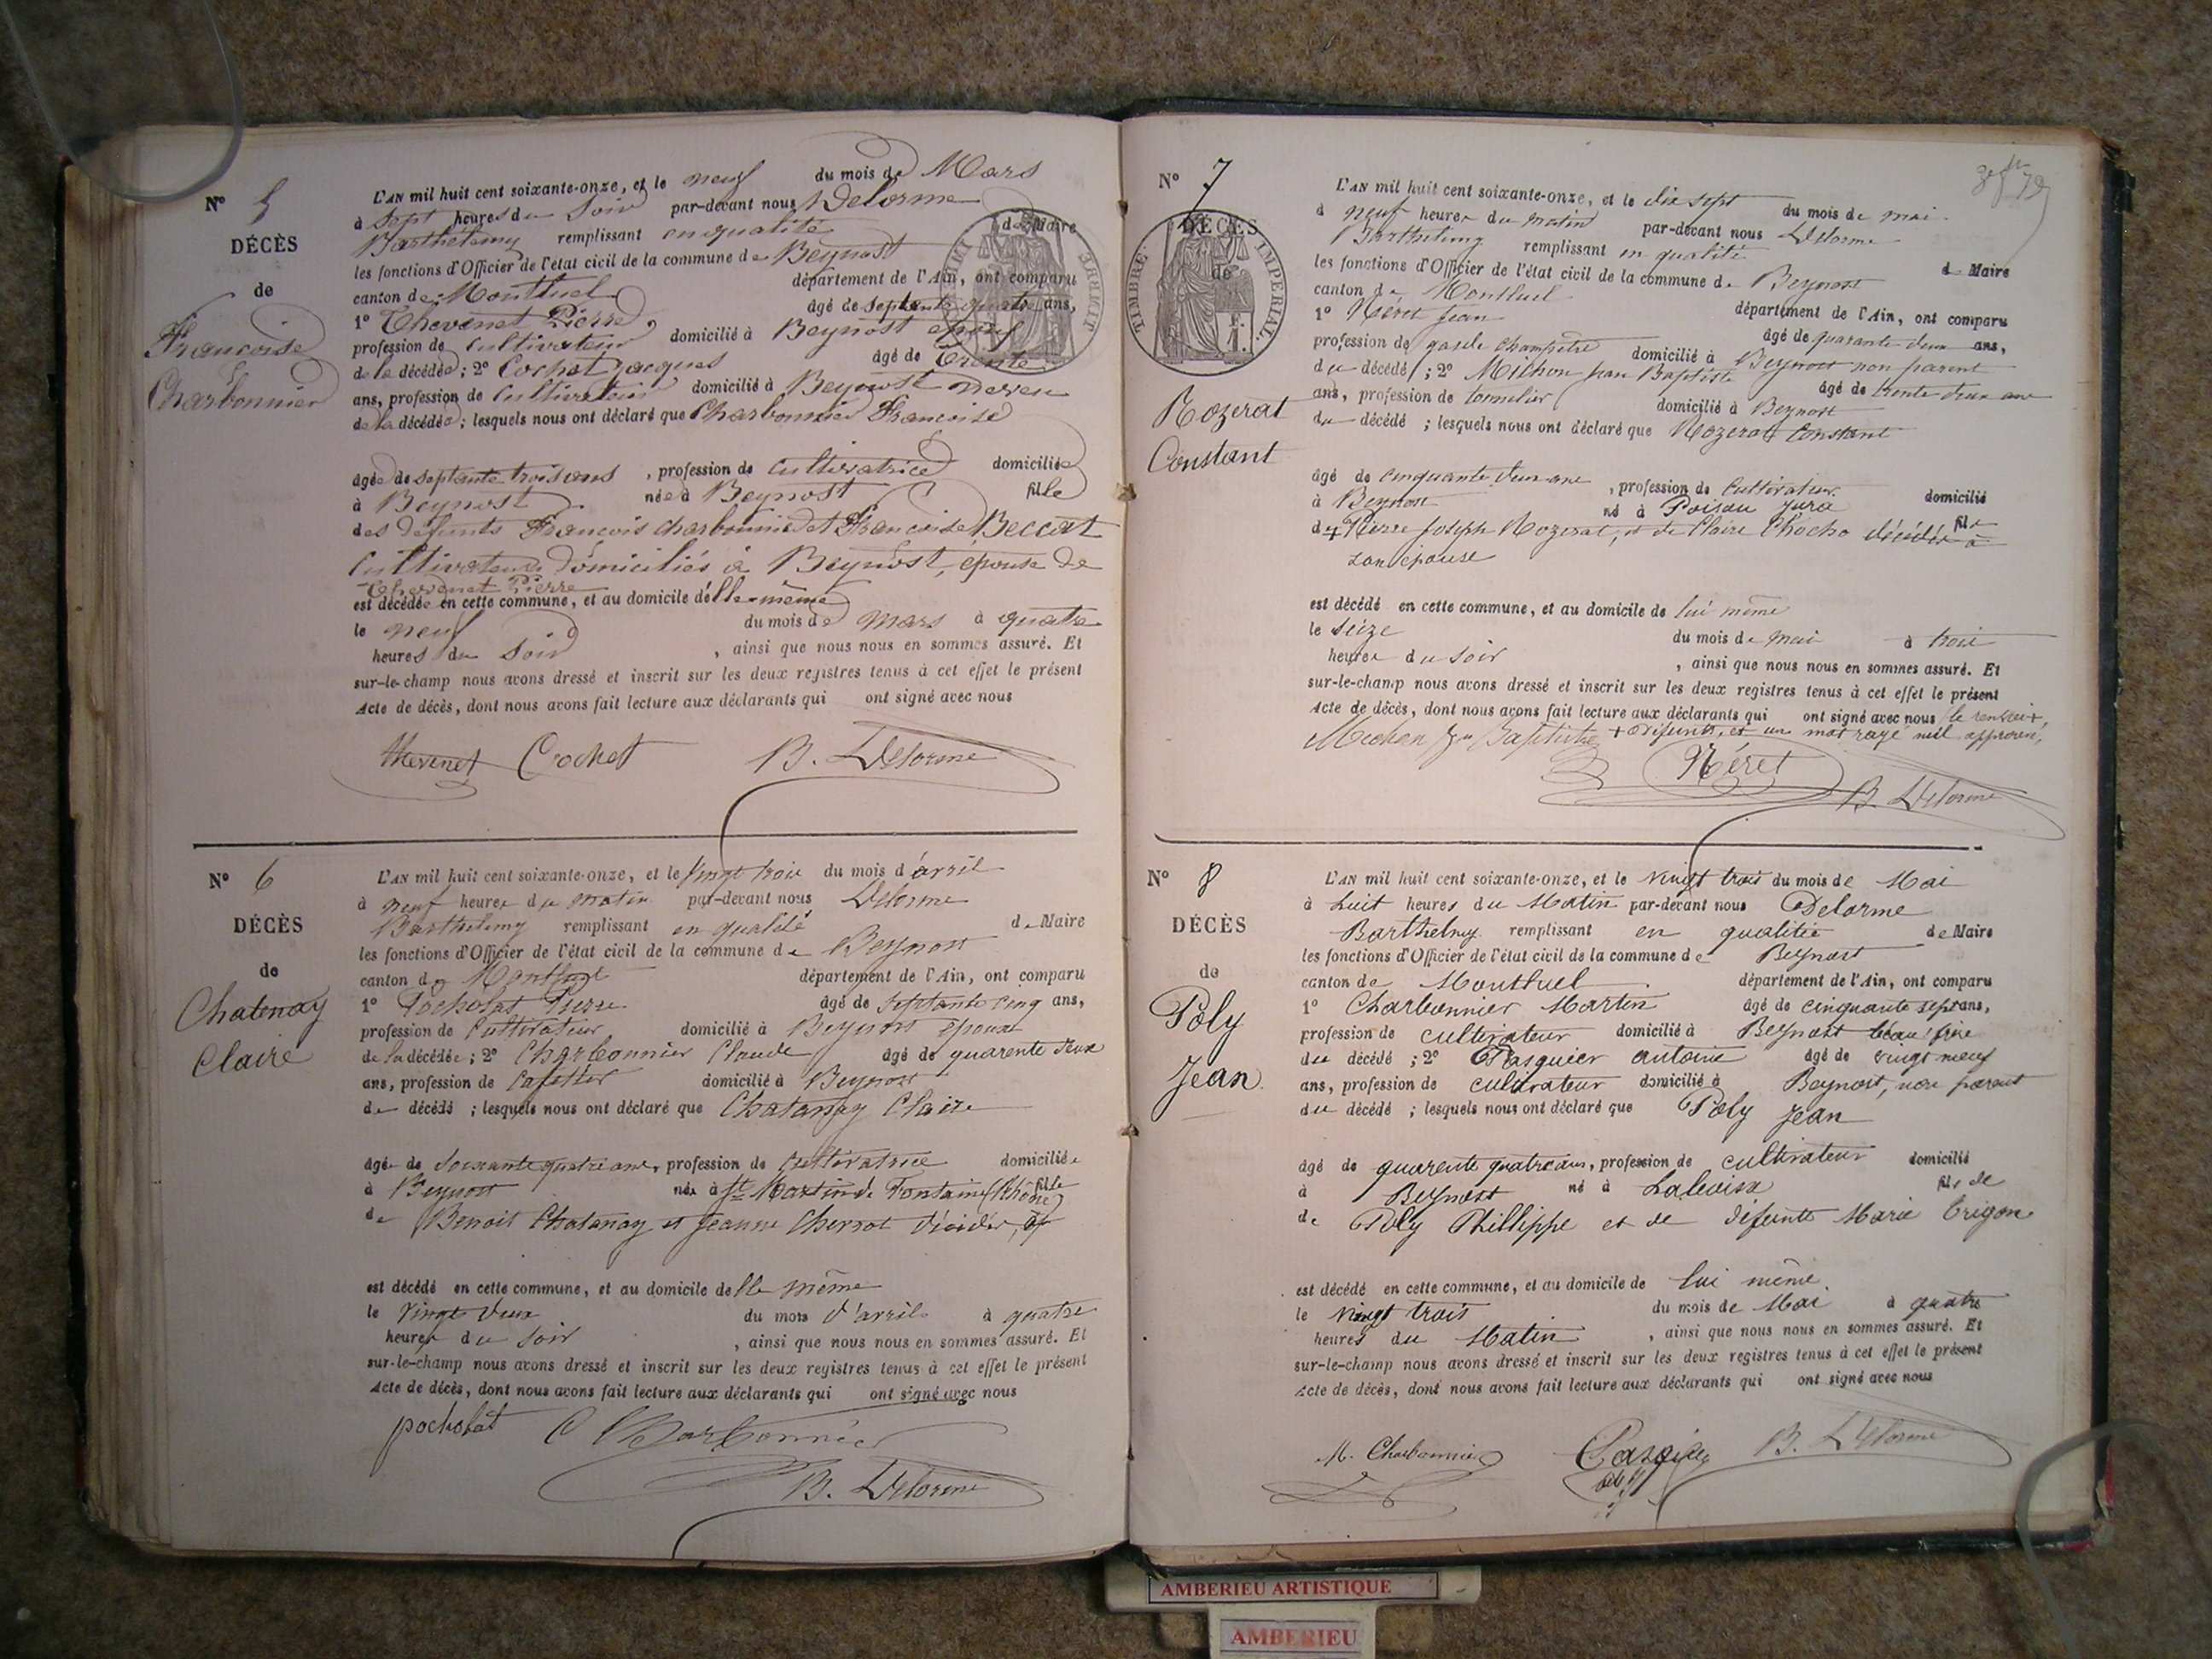 N° 5
DÉCÈS
de
Françoise
Charbonnier
L'AN mil huit cent soixante-onze, et le neuf du mois de Mars
à sept heures du soir par-devant nous Delorme
Barthelemy remplissant en qualité de Maire
les fonctions d'Officier de l'état civil de la commune de Beynost
canton de Montluel département de l'Ain, ont comparu
1° Thevenet Pierre, âgé de septante quatre ans,
profession de cultivateur domicilié à Beynost époux
de la décédée; 2° Cochet Jacques âgé de Trente
ans, profession de Cultivateur domicilié à Beynost neveu
de la décédée; lesquels nous ont déclaré que Charbonnier Françoise
âgée de septante trois ans, profession de Cultivatrice domiciliée
à Beynost née à Beynost fille
des défunts François Charbonnier et Françoise Beccat
Cultivateurs domiciliés à Beynost, épouse de
Thevenet Pierre
est décédée en cette commune, et au domicile d'elle-même
le neuf du mois de Mars à quatre
heures du soir, ainsi que nous nous en sommes assuré. Et
sur-le-champ nous avons dressé et inscrit sur les deux registres tenus à cet effet le présent
Acte de décès, dont nous avons fait lecture aux déclarants qui ont signé avec nous
thevenet Crochet B. Delorme
N° 6
DÉCÈS
de
Chatenay
Claire
L'AN mil huit cent soixante-onze, et le vingt trois du mois d'avril
à neuf heures du matin par-devant nous Delorme
Barthelemy remplissant en qualité de Maire
les fonctions d'Officier de l'état civil de la commune de Beynost
canton de Montluel département de l'Ain, ont comparu
1° Pocholat Pierre âgé de septante cinq ans,
profession de Cultivateur domicilié à Beynost époux
de la décédée; 2° Charbonnier Claude âgé de quarente deux
ans, profession de Cafetier domicilié à Beynost
de décédé; lesquels nous ont déclaré que Chatanay Claire
âgé de soixante quatre ans, profession de Cultivatrice domiciliée
à Beynost née à St Martin de Fontaine (Rhône) fille
de Benoit Chatanay et Jeanne décédés
est décédé en cette commune, et au domicile d'elle même
le vingt deux du mois d'avril à quatre
heures du soir, ainsi que nous nous en sommes assuré. Et
sur-le-champ nous avons dressé et inscrit sur les deux registres tenus à cet effet le présent
Acte de décès, dont nous avons fait lecture aux déclarants qui ont signé avec nous
pocholat C Charbonnier
B. Delorme
N° 7
DÉCÈS
de
TIMBRE IMPERIAL
Rozerat
Constant
L'AN mil huit cent soixante-onze, et le dix sept du mois de mai
à neuf heures du matin par-devant nous Delorme
Barthelemy remplissant en qualité de Maire
les fonctions d'Officier de l'état civil de la commune de Beynost
canton de Montluel département de l'Ain, ont comparu
1° Néret Jean âgé de quarante deux ans,
profession de garde champêtre domicilié à Beynost non parent
du décédé; 2° Michon Jean Baptiste âgé de trente deux ans
ans, profession de tonnelier domicilié à Beynost
du décédé; lesquels nous ont déclaré que Rozerat Constant
âgé de cinquante deux ans, profession de Cultivateur domicilié
à Beynost né à Poisou Jura fils
de + Pierre Joseph Rozerat, et de Claire Chocho décédés à
son épouse
est décédé en cette commune, et au domicile de lui même
le seize du mois de mai à trois
heures du soir, ainsi que nous nous en sommes assuré. Et
sur-le-champ nous avons dressé et inscrit sur les deux registres tenus à cet effet le présent
Acte de décès, dont nous avons fait lecture aux déclarants qui ont signé avec nous le renvoi +,
Michon Jn Baptiste + Défunts, et un mot rayé nul approuvé,
Néret
B. Delorme
N° 8
DÉCÈS
de
Poly
Jean
L'AN mil huit cent soixante-onze, et le vingt trois du mois de Mai
à huit heures du Matin par-devant nous Delorme
Barthelmy remplissant en qualitée de Maire
les fonctions d'Officier de l'état civil de la commune de Beynost
canton de Montluel département de l'Ain, ont comparu
1° Charbonnier Martin âgé de cinquante sept ans,
profession de cultivateur domicilié à Beynost beau frère
du décédé; 2° Pasquier antoine âgé de vingt neuf
ans, profession de cultivateur domicilié à Beynost, non parent
du décédé; lesquels nous ont déclaré que Poly Jean
âgé de quarente quatre ans, profession de cultivateur domicilié
à Beynost né à Laboisse fils de
de Poly Phillippe et de défunte Marie Trigon
est décédé en cette commune, et au domicile de lui même
le vingt trois du mois de Mai à quatre
heures du Matin, ainsi que nous nous en sommes assuré. Et
sur-le-champ nous avons dressé et inscrit sur les deux registres tenus à cet effet le présent
Acte de décès, dont nous avons fait lecture aux déclarants qui ont signé avec nous
M. Charbonnier Pasquier B. Delorme
AMBERIEU ARTISTIQUE
AMBERIEU